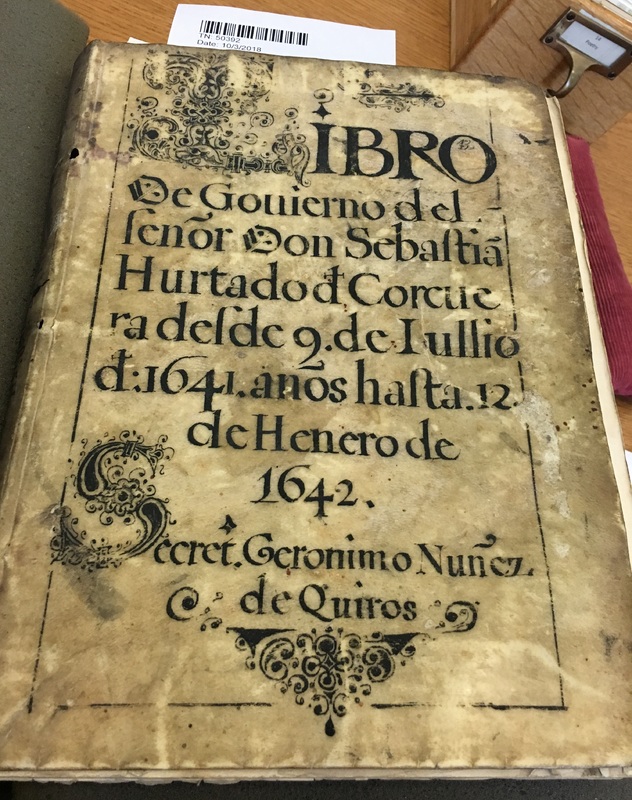 TN 50392
Date: 10/3/2018
LIBRO
De Gouierno del
señor Don Sebastiã
Hurtado đ Corcue
ra desde 9. de Iullio
đ:1641. años hasta.12
de Henero de
1642.
Secret. Geronimo Nuñez
de Quiros